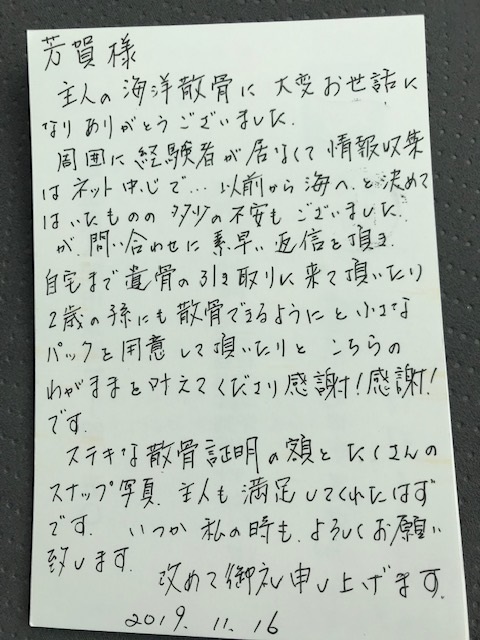 芳賀様
主人の海洋散骨に大変お世話に
なりありがとうございました.
周囲に経験者が居なくて情報収集
はネット中心で…以前から海へ、と決めて
はいたものの多少の不安もございました.
が、問い合わせに素早い返信を頂き.
自宅まで遺骨の引き取りに来て頂いたり
2歳の孫にも散骨できるようにと小さな
パックを用意して頂いたりと こちらの
わがままを叶えてくださり感謝!感謝!
です.
ステキな散骨証明の額とたくさんの
スナップ写真、主人も満足してくれたはず
です. いつか私の時も、よろしくお願い
致します.
改めて御礼申し上げます.
2019. 11. 16